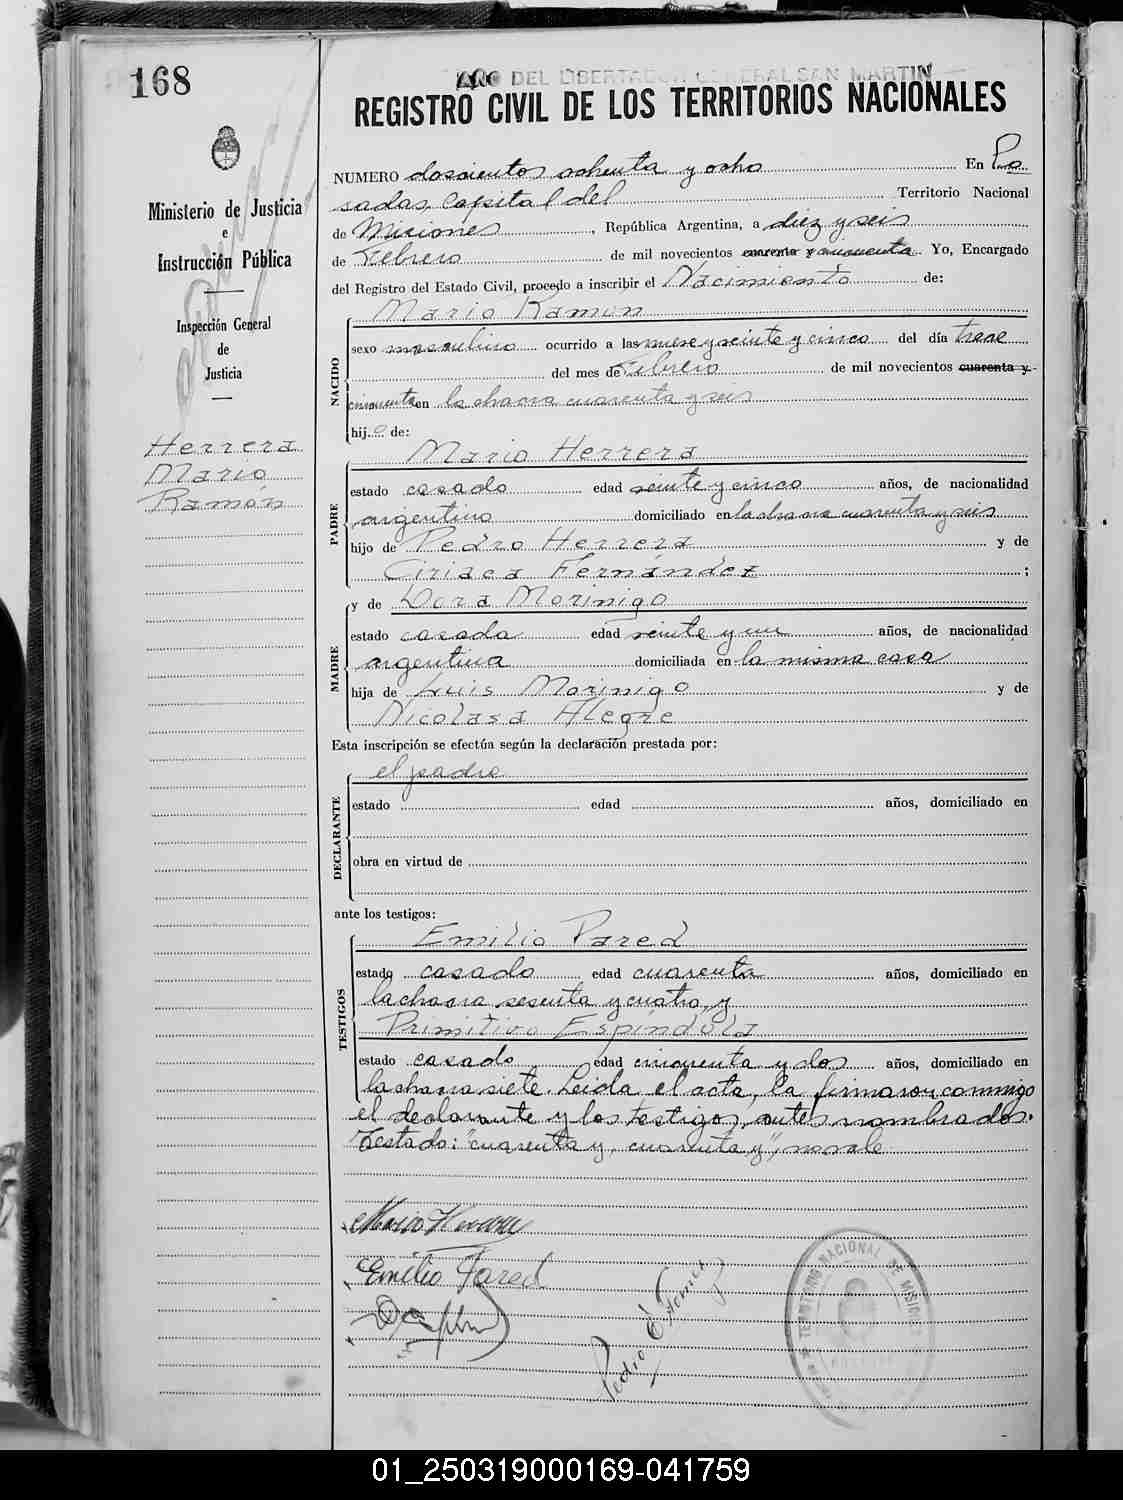 168
AÑO DEL LIBERTADOR GENERAL SAN MARTIN
REGISTRO CIVIL DE LOS TERRITORIOS NACIONALES
Ministerio de Justicia
e
Instrucción Pública
Inspección General
de
Justicia
Herrera
Mario
Ramón
NUMERO doscientos ochenta y ocho En Po
sadas, Capital del Territorio Nacional
de Misiones, República Argentina, a diez y seis
de Febrero de mil novecientos cuarenta y cincuenta Yo, Encargado
del Registro del Estado Civil, procedo a inscribir el Nacimiento de:
NACIDO
Mario Ramón
sexo masculino ocurrido a las nueve y veinte y cinco del día trece
del mes de Febrero de mil novecientos cuarenta y
cincuenta en la chacra cuarenta y seis
hijo de:
PADRE
Mario Herrera
estado casado edad veinte y cinco años, de nacionalidad
argentino domiciliado en la chacra cuarenta y seis
hijo de Pedro Herrera y de
Ciriaca Fernández ;
MADRE
y de Dora Morinigo
estado casada edad veinte y un años, de nacionalidad
argentina domiciliada en la misma casa
hija de Luis Morinigo y de
Nicolasa Alegre
Esta inscripción se efectúa según la declaración prestada por:
DECLARANTE
el padre
estado edad años, domiciliado en
obra en virtud de
ante los testigos:
TESTIGOS
Emilio Pared
estado casado edad cuarenta años, domiciliado en
la chacra sesenta y cuatro, y
Primitivo Espíndola
estado casado edad cincuenta y dos años, domiciliado en
la chacra siete. Leida el acta, la firmaron conmigo
el declarante y los testigos antes nombrados.
Testado: "cuarenta y, cuarenta y", no vale
Mario Herrera
Emilio Pared
Pedro
TERRITORIO NACIONAL DE MISIONES
01_250319000169-041759